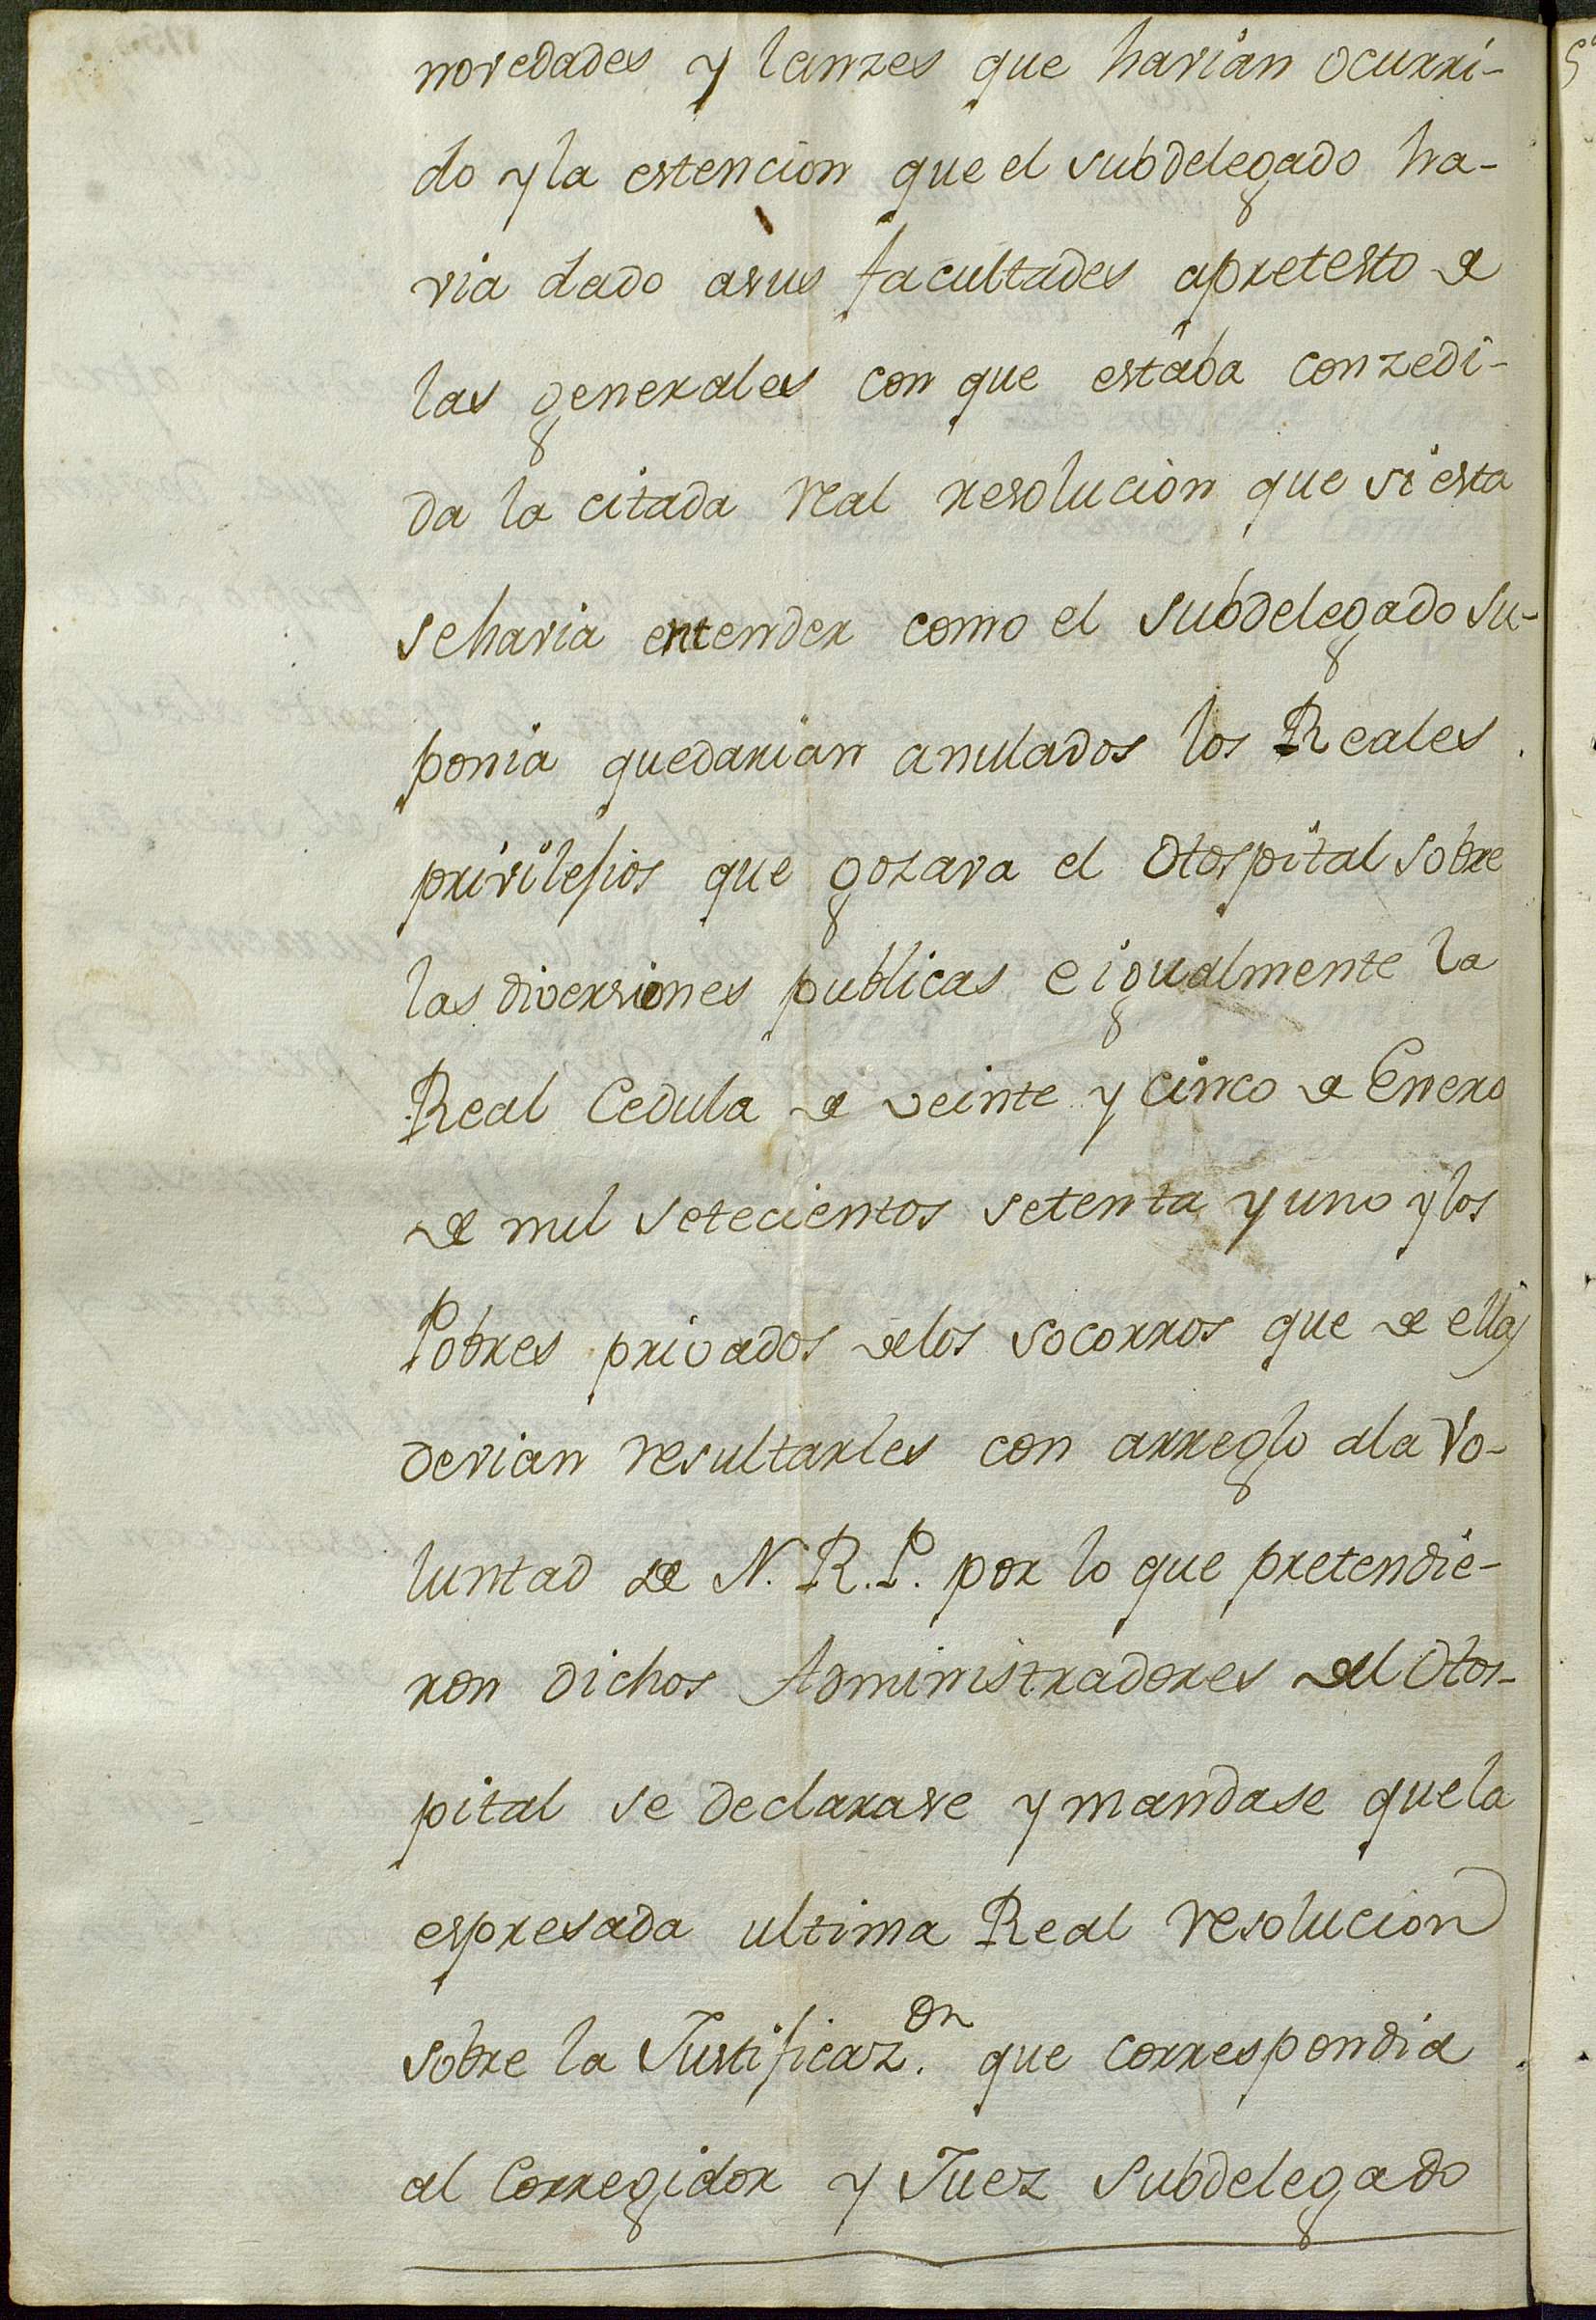 novedades y lanzes que havian ocurri-
do y la estencion que el subdelegado ha-
via dado asus facultades apretesto de
las generales con que estaba conzedi-
da la citada real resolucion que si esta
se havia entender como el subdelegado su-
ponia quedarian anulados los Reales
privilejios que gozava el Hospital sobre
las diversiones publicas e igualmente la
Real Cedula de veinte y cinco de Enero
de mil setecientos setenta y uno y los
Pobres privados delos socorros que de ellas
devian resultarles con arreglo ala vo-
luntad de N. R. P. por lo que pretendie-
ron dichos Administradores del Hos-
pital se declarase y mandase que la
espresada ultima Real resolucion
sobre la Justificaz.on que correspondia
al Corregidor y Juez subdelegado